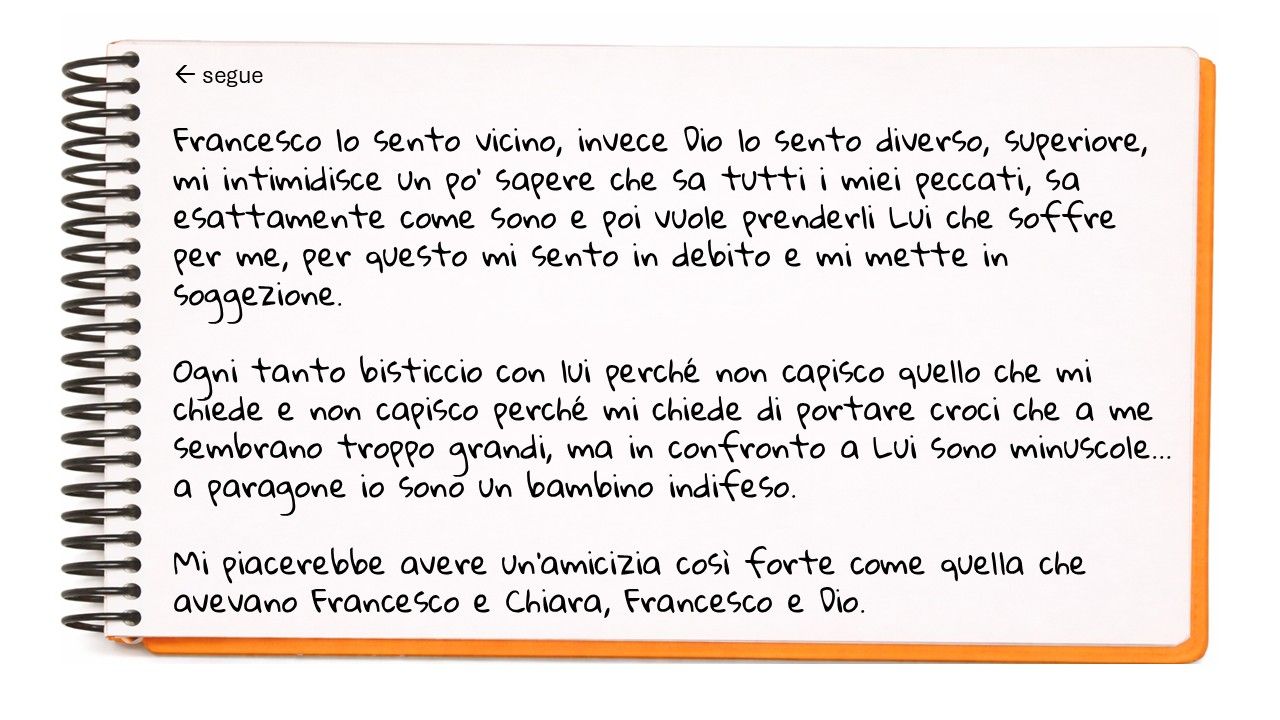 ← segue
Francesco lo sento vicino, invece Dio lo sento diverso, superiore,
mi intimidisce un po' sapere che sa tutti i miei peccati, sa
esattamente come sono e poi vuole prenderli Lui che soffre
per me, per questo mi sento in debito e mi mette in
soggezione.
Ogni tanto bisticcio con lui perché non capisco quello che mi
chiede e non capisco perché mi chiede di portare croci che a me
sembrano troppo grandi, ma in confronto a Lui sono minuscole...
a paragone io sono un bambino indifeso.
Mi piacerebbe avere un'amicizia così forte come quella che
avevano Francesco e Chiara, Francesco e Dio.